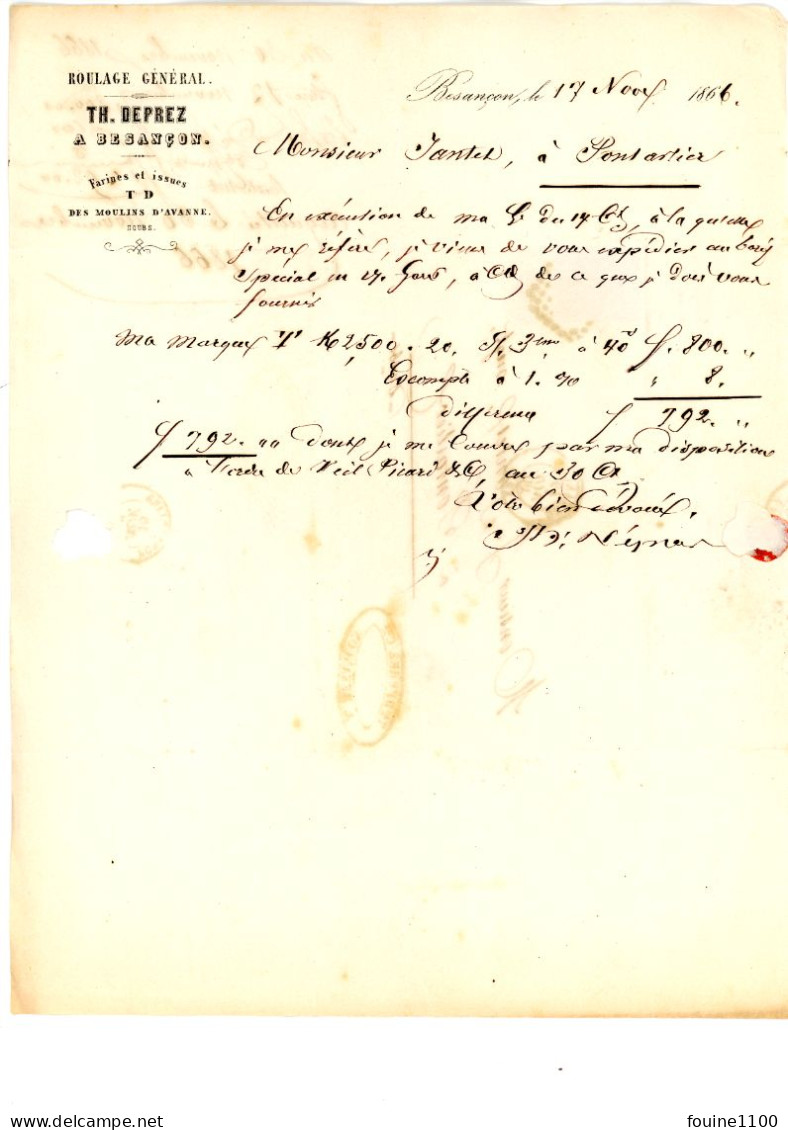 ROULAGE GÉNÉRAL.
TH. DEPREZ
A BESANÇON.
Farines et issues
T D
DES MOULINS D'AVANNE.
DOUBS.
Besançon, le 17 Nov 1866.
Monsieur Jantet, à Pontarlier
En exécution de ma du 14 Ct, à la quelle
je me réfère, je viens de vous expédier au
Spécial en 14 , à de ce que je dois vous
fournir
Ma Marque K 2,500. 20. 3ème à 40 f. 800. "
Escompte à 1. % " 8.
différence f 792. "
f 792. "" dont je me couvre par ma disposition
à l'ordre de Veil Picard & C, au 30 Ct
Votre bien dévoué.